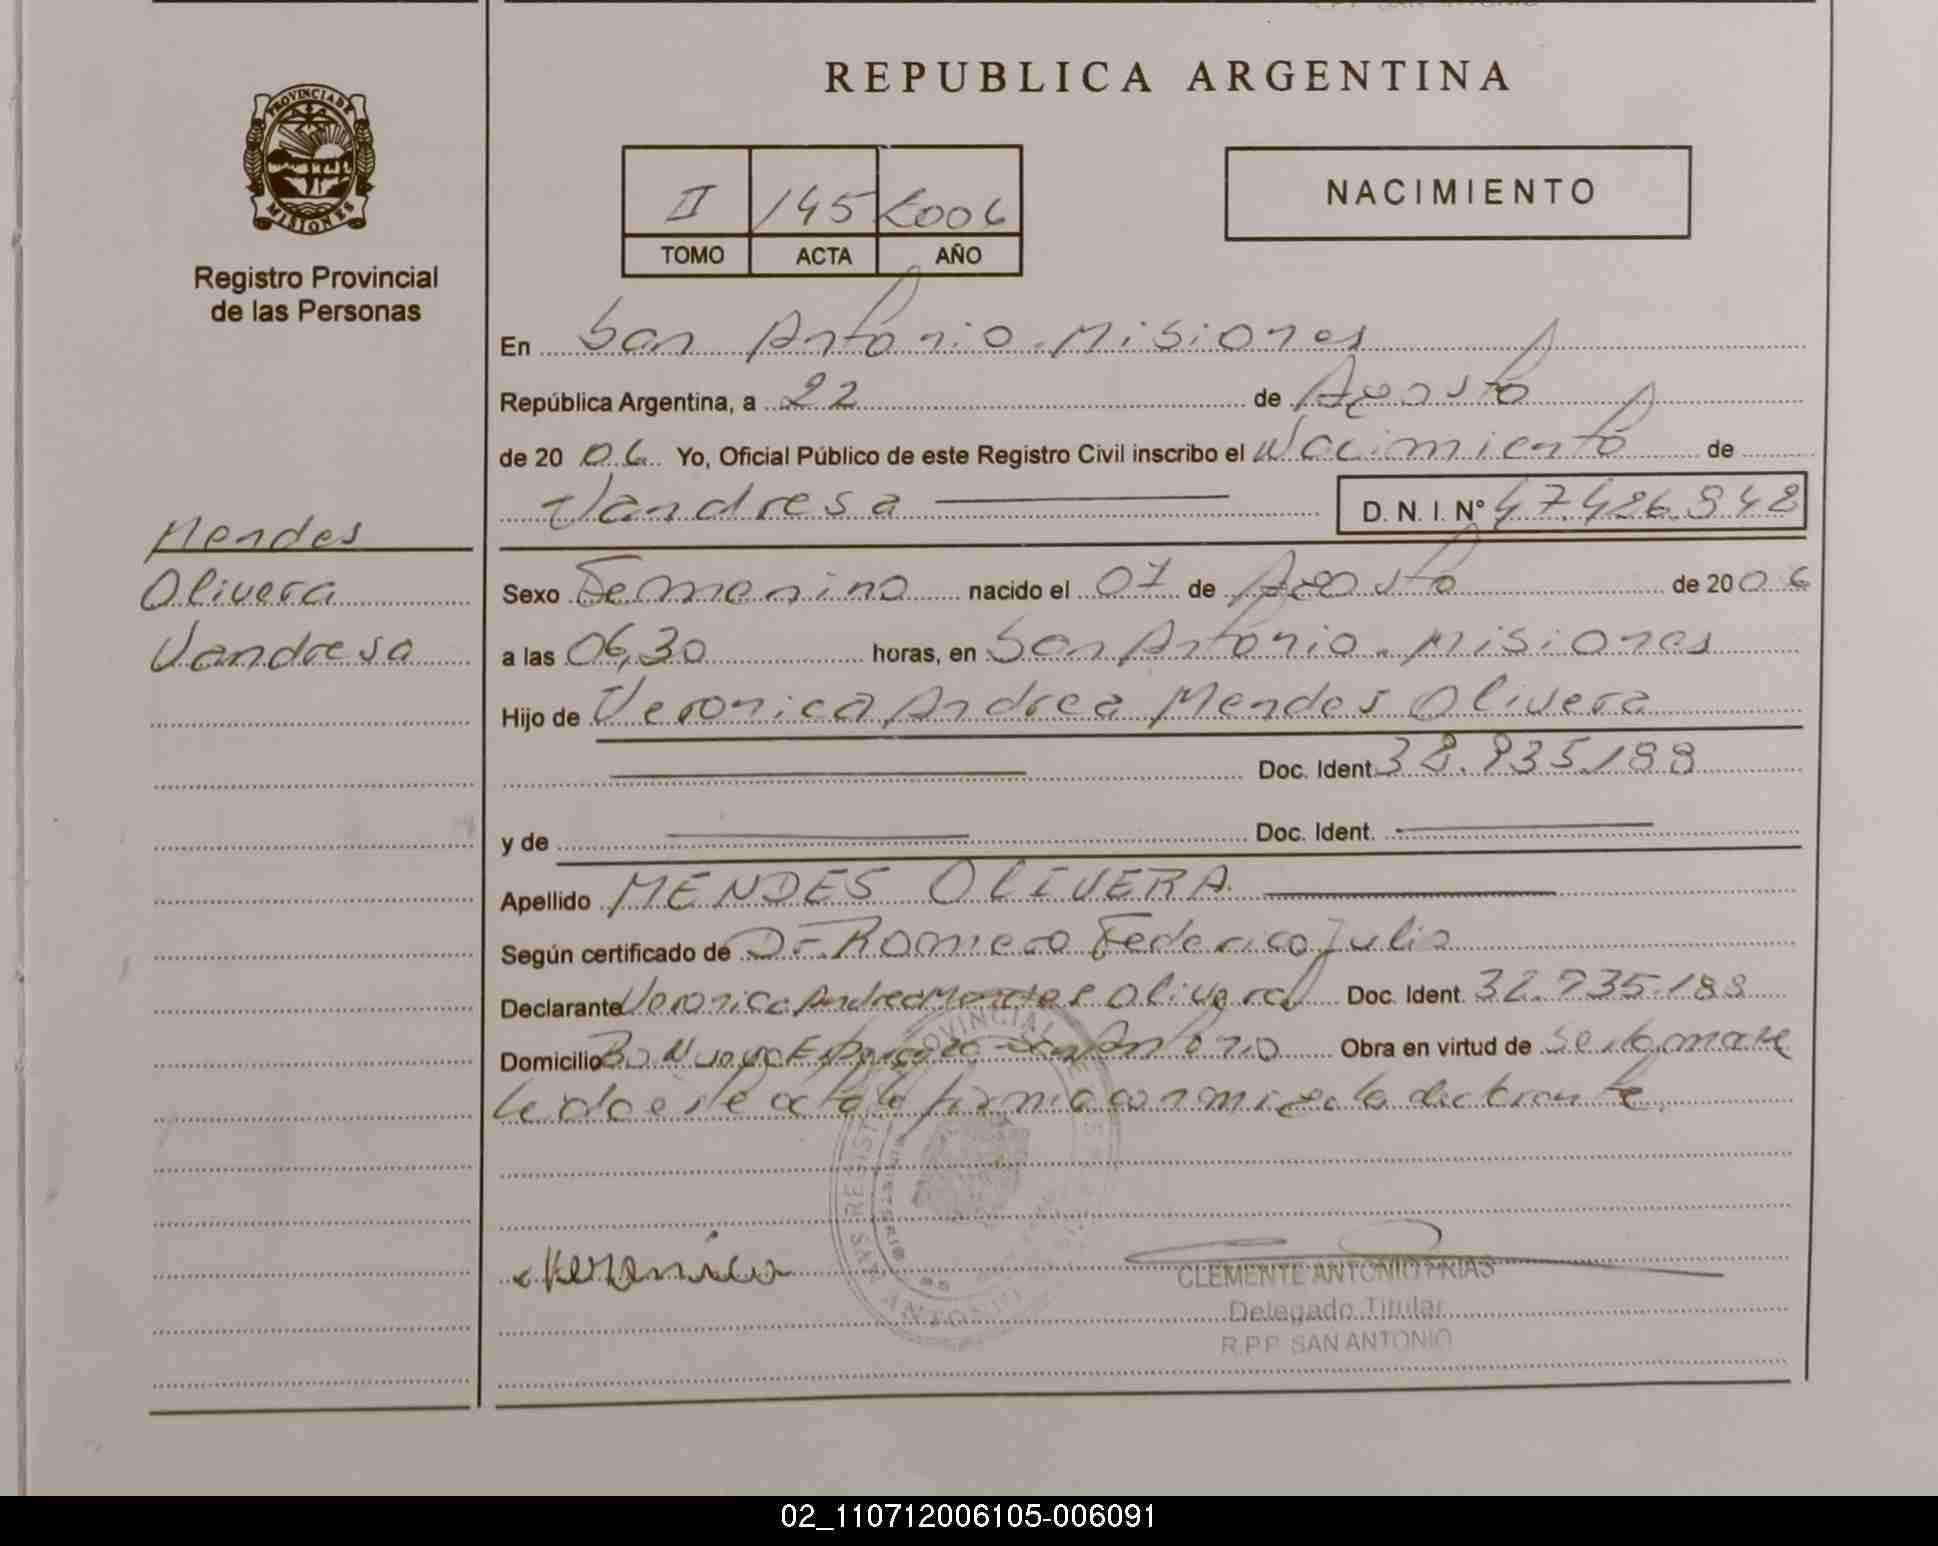 REPUBLICA ARGENTINA
PROVINCIA DE
MISIONES
Registro Provincial
de las Personas
II 145 2006
TOMO ACTA AÑO
NACIMIENTO
En San Antonio - Misiones
República Argentina, a 22 de Agosto
de 20 06 Yo, Oficial Público de este Registro Civil inscribo el Nacimiento de
Vandresa D. N. I. Nº 47.426.948
Mendes
Olivera
Vandresa
Sexo Femenino nacido el 07 de Agosto de 20 06
a las 06,30 horas, en San Antonio - Misiones
Hijo de Veronica Andrea Mendes Olivera
Doc. Ident.
y de Doc. Ident.
Apellido MENDES OLIVERA
Según certificado de Dr. Romero Federico Julio
Declarante Veronica Andrea Mendes Olivera Doc. Ident.
Domicilio Bo San Antonio Obra en virtud de
este acta la firma conmigo la declarante
Veronica
REGISTRO PROVINCIAL DE
SAN ANTONIO
CLEMENTE ANTONIO FRIAS
Delegado Titular
R.P.P. SAN ANTONIO
02_110712006105-006091